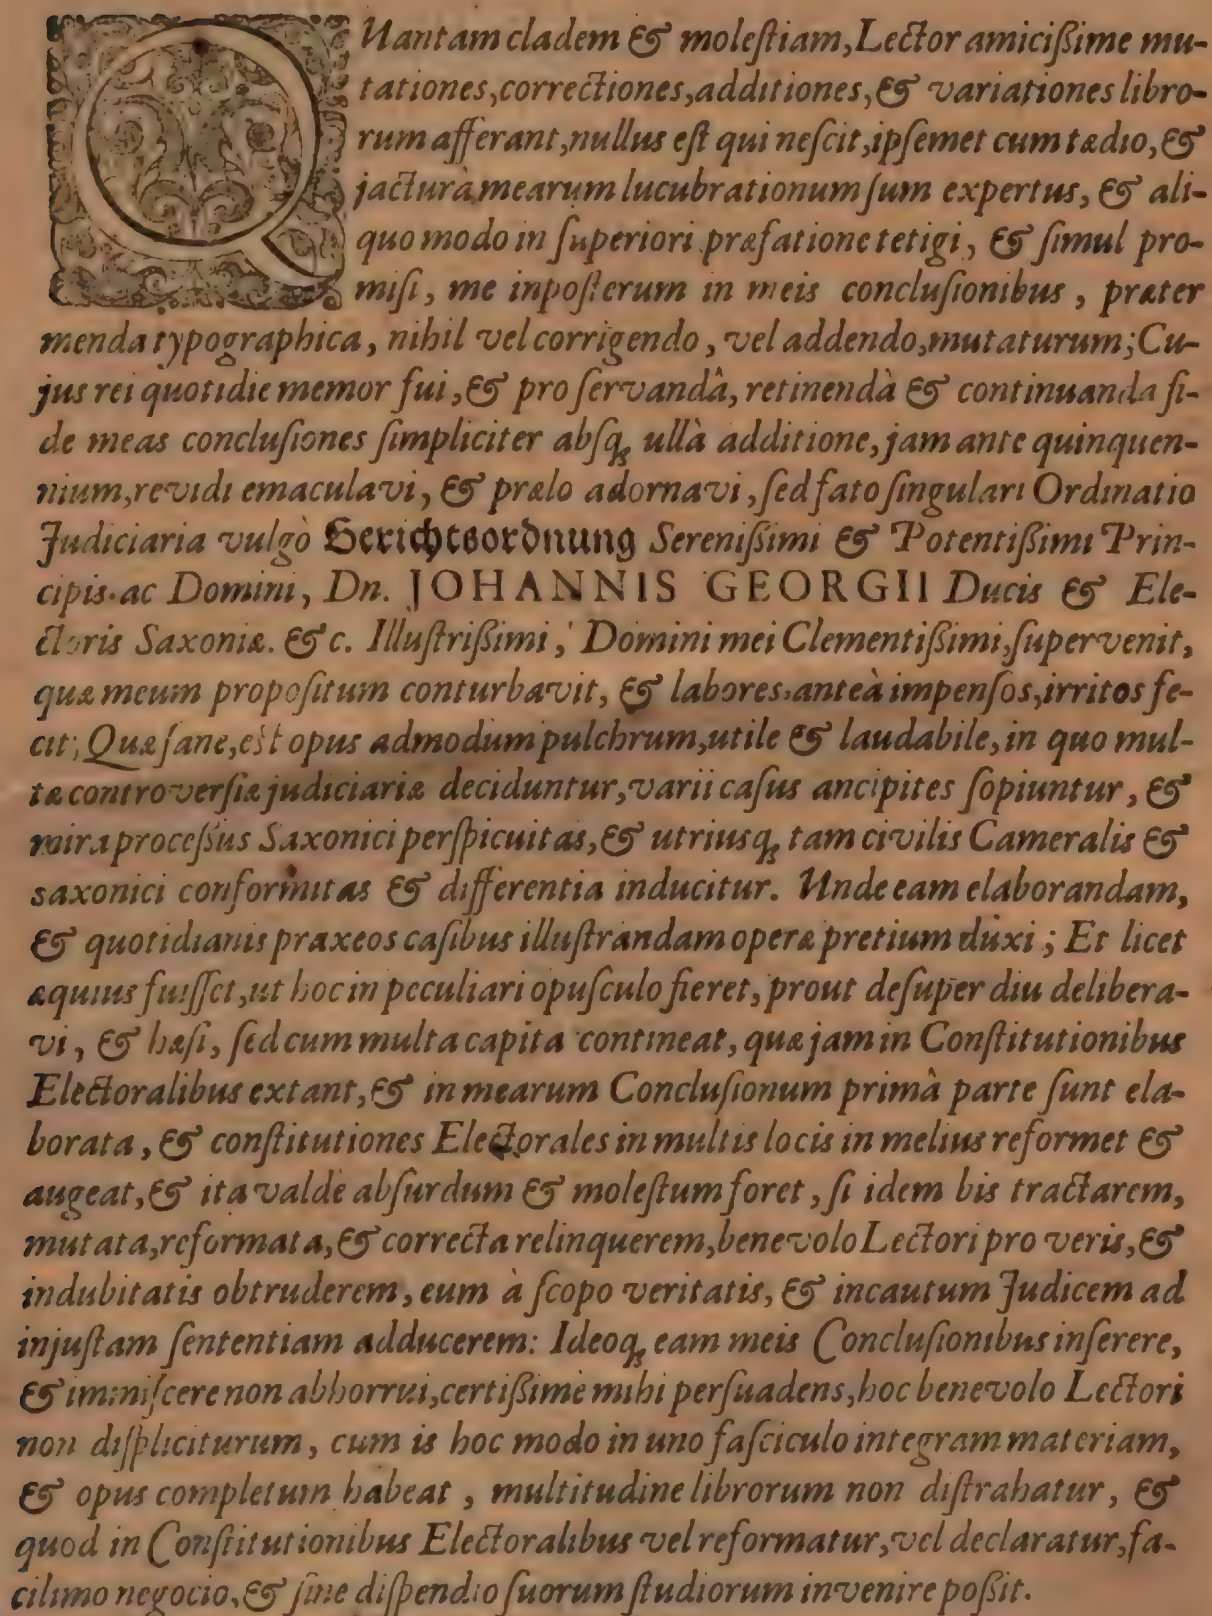 QUantam cladem & molestiam, Lector amicißime mu-
tationes, correctiones, additiones, & variationes libro-
rum afferant, nullus est qui nescit, ipsemet cum tædio, &
jacturâ mearum lucubrationum sum expertus, & ali-
quo modo in superiori præfatione tetigi, & simul pro-
misi, me inposterum in meis conclusionibus, præter
menda typographica, nihil vel corrigendo, vel addendo, mutaturum; Cu-
jus rei quotidie memor fui, & pro servandâ, retinendâ & continuanda fi-
de meas conclusiones simpliciter absq; ullà additione, jam ante quinquen-
nium, revidi emaculavi, & prælo adornavi, sed fato singulari Ordinatio
Judiciaria vulgò Gerichtsordnung Serenißimi & Potentißimi Prin-
cipis ac Domini, Dn. JOHANNIS GEORGII Ducis & Ele-
ctoris Saxoniæ. &c. Illustrißimi, Domini mei Clementißimi, supervenit,
quæ meum propositum conturbavit, & labores anteà impensos, irritos fe-
cit; Quæ sane, est opus admodum pulchrum, utile & laudabile, in quo mul-
tæ controversiæ judiciariæ deciduntur, varii casus ancipites sopiuntur, &
mira proceßus Saxonici perspicuitas, & utriusq; tam civilis Cameralis &
saxonici conformitas & differentia inducitur. Unde eam elaborandam,
& quotidianis praxeos casibus illustrandam operæ pretium duxi; Et licet
æquius fuisset, ut hoc in peculiari opusculo fieret, prout desuper diu delibera-
vi, & hæsi, sed cum multa capita contineat, quæ jam in Constitutionibus
Electoralibus extant, & in mearum Conclusionum primâ parte sunt ela-
borata, & constitutiones Electorales in multis locis in melius reformet &
augeat, & ita valdè absurdum & molestum foret, si idem bis tractarem,
mutata, reformata, & correcta relinquerem, benevolo Lectori pro veris, &
indubitatis obtruderem, eum à scopo veritatis, & incautum Judicem ad
injustam sententiam adducerem: Ideoq; eam meis Conclusionibus inserere,
& immiscere non abhorrui, certißimè mihi persuadens, hoc benevolo Lectori
non displiciturum, cum is hoc modo in uno fasciculo integram materiam,
& opus completum habeat, multitudine librorum non distrahatur, &
quod in Constitutionibus Electoralibus vel reformatur, vel declaratur, fa-
cilimo negocio, & sine dispendio suorum studiorum invenire poßit.